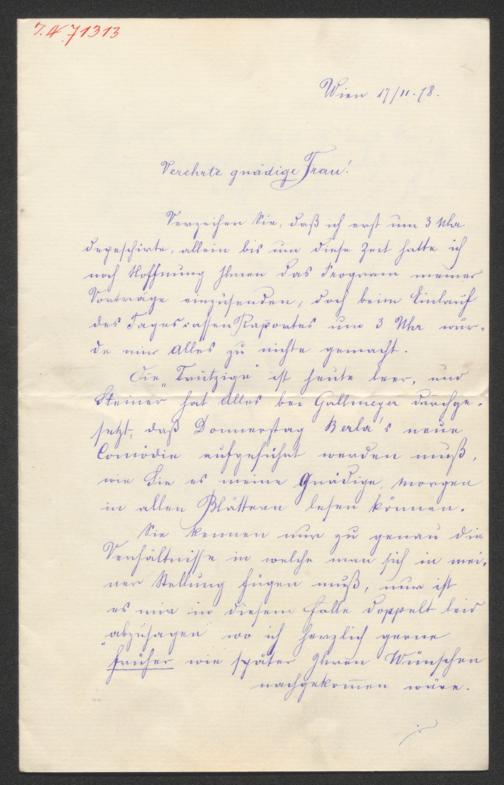 I.N. 71313
Wien 17/11.78.
Verehrte gnädige Frau!
Verzeihen Sie, daß ich erst um 3 Uhr
depeschirte, allein bis um diese Zeit hatte ich
noch Hoffnung Ihnen das Program meiner
Vorträge einzusenden, doch beim Einlauf
des Tagescassen Raportes um 3 Uhr wur-
de mir Alles zu nichte gemacht.
Die „Trutzige" ist heute leer, und
Steiner hat Alles bei Gallmeyer durchge-
setzt, daß Donnerstag Berla's neue
Comödie aufgeführt werden muß,
wie Sie es meine Gnädige, morgen
in allen Blättern lesen können.
Sie kennen nur zu genau die
Verhältnisse in welche man sich in mei-
ner Stellung fügen muß, nur ist
es mir in diesem Falle doppelt leid
abzusagen wo ich herzlich gerne
früher wie später Ihren Wünschen
nachgekommen wäre.